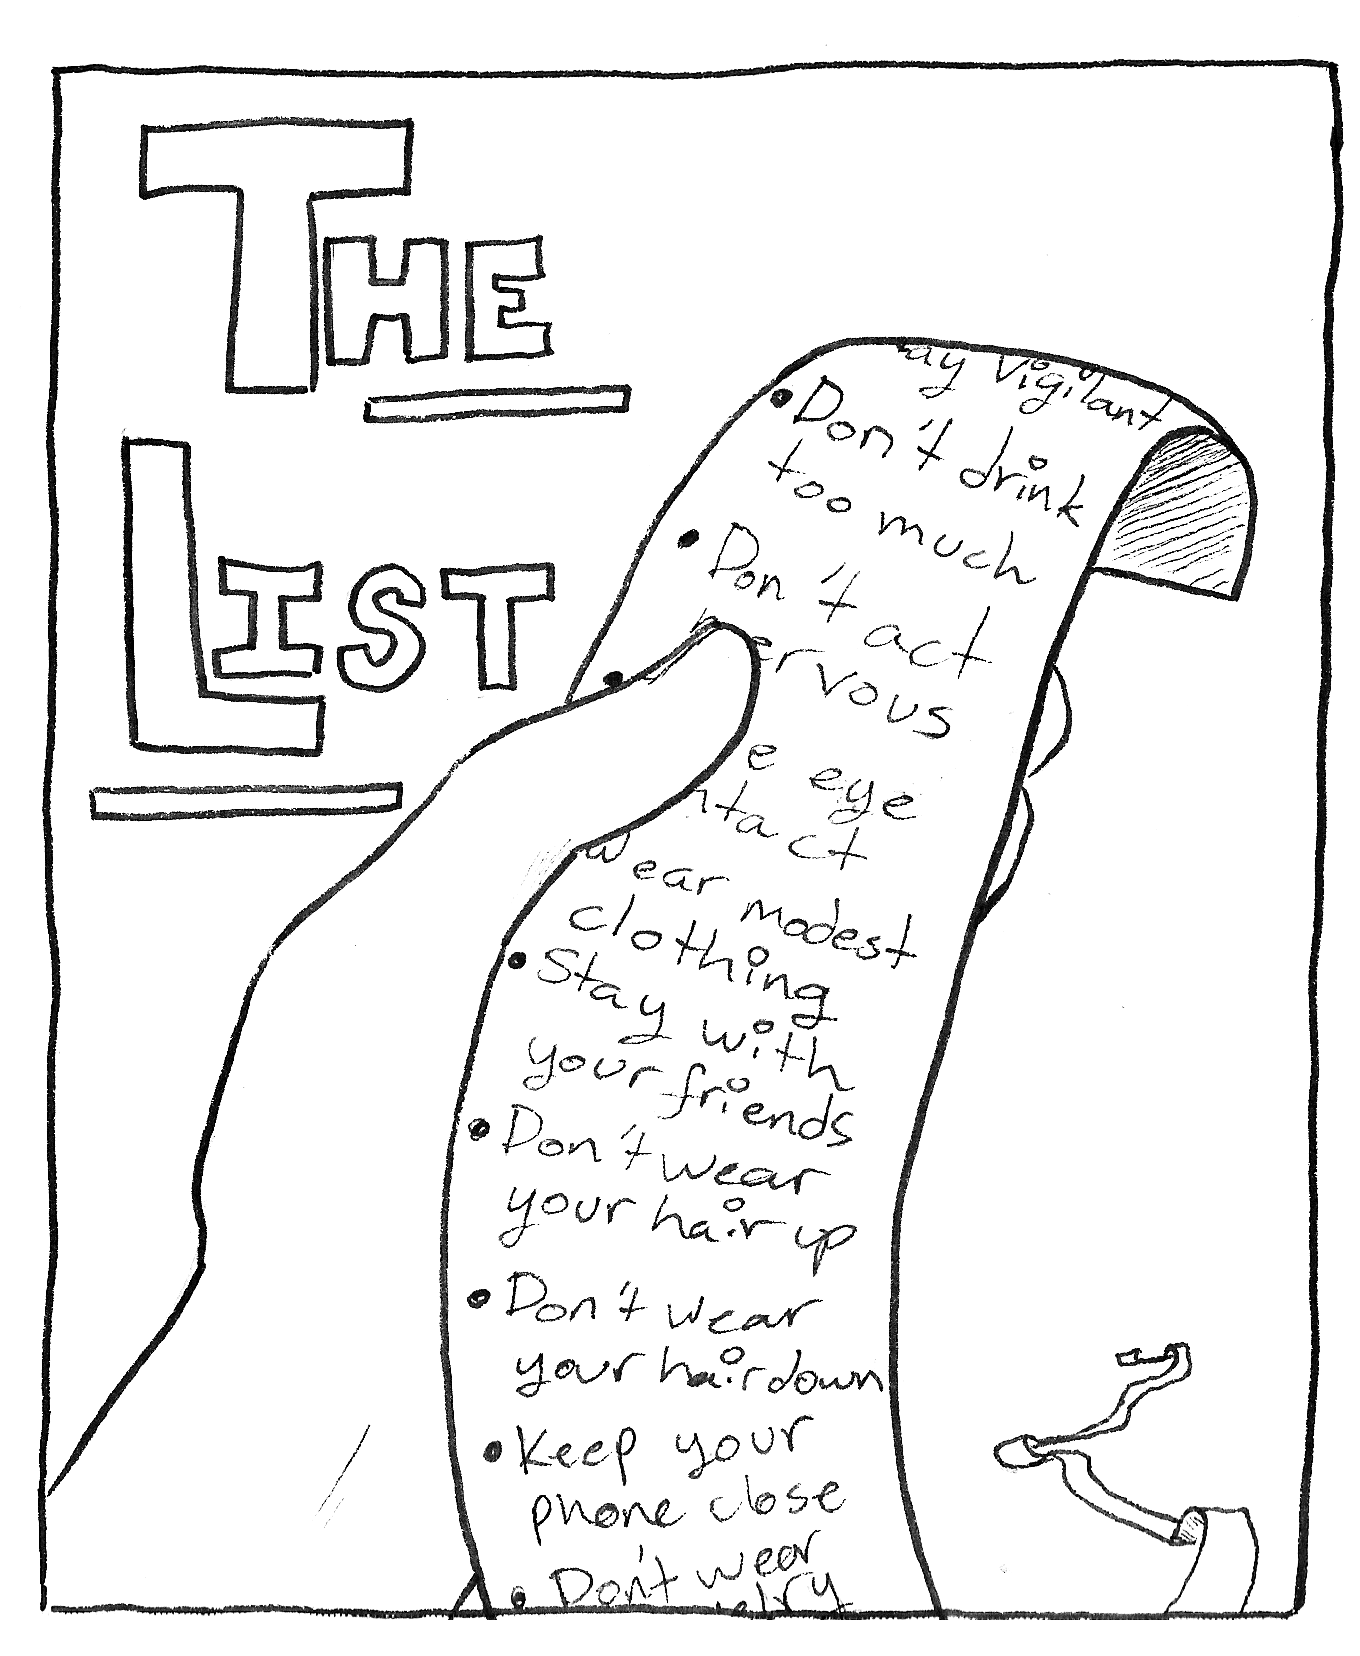 THE
LIST
ay vigilant
• Don't drink
too much
• Don't act
nervous
•
e eye
ntact
wear modest
clothing
• Stay with
your friends
• Don't wear
your hair up
• Don't wear
your hair down
• Keep your
phone close
• Don't wear
elry